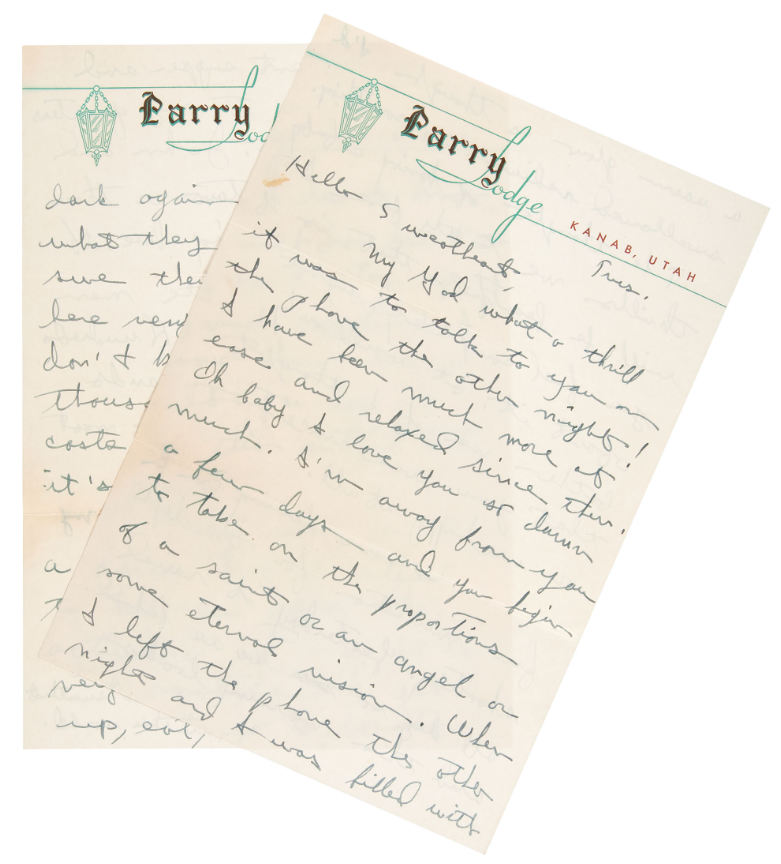 Parry Lodge
KANAB, UTAH
Tues.
Hello Sweetheart,
My God what a thrill
it was to talk to you on
the phone the other night!
I have been much more at
ease and relaxed since then.
Oh baby I love you so damn
much. I'm away from you
a few days and you begin
to take on the proportions
of a saint or an angel or
some eternal vision. When
I left the phone the other
night and I was filled with
Parry Lod
dark again
what they
sure the
here very
don't b
thous
costs
it's
a
very
up, eat,